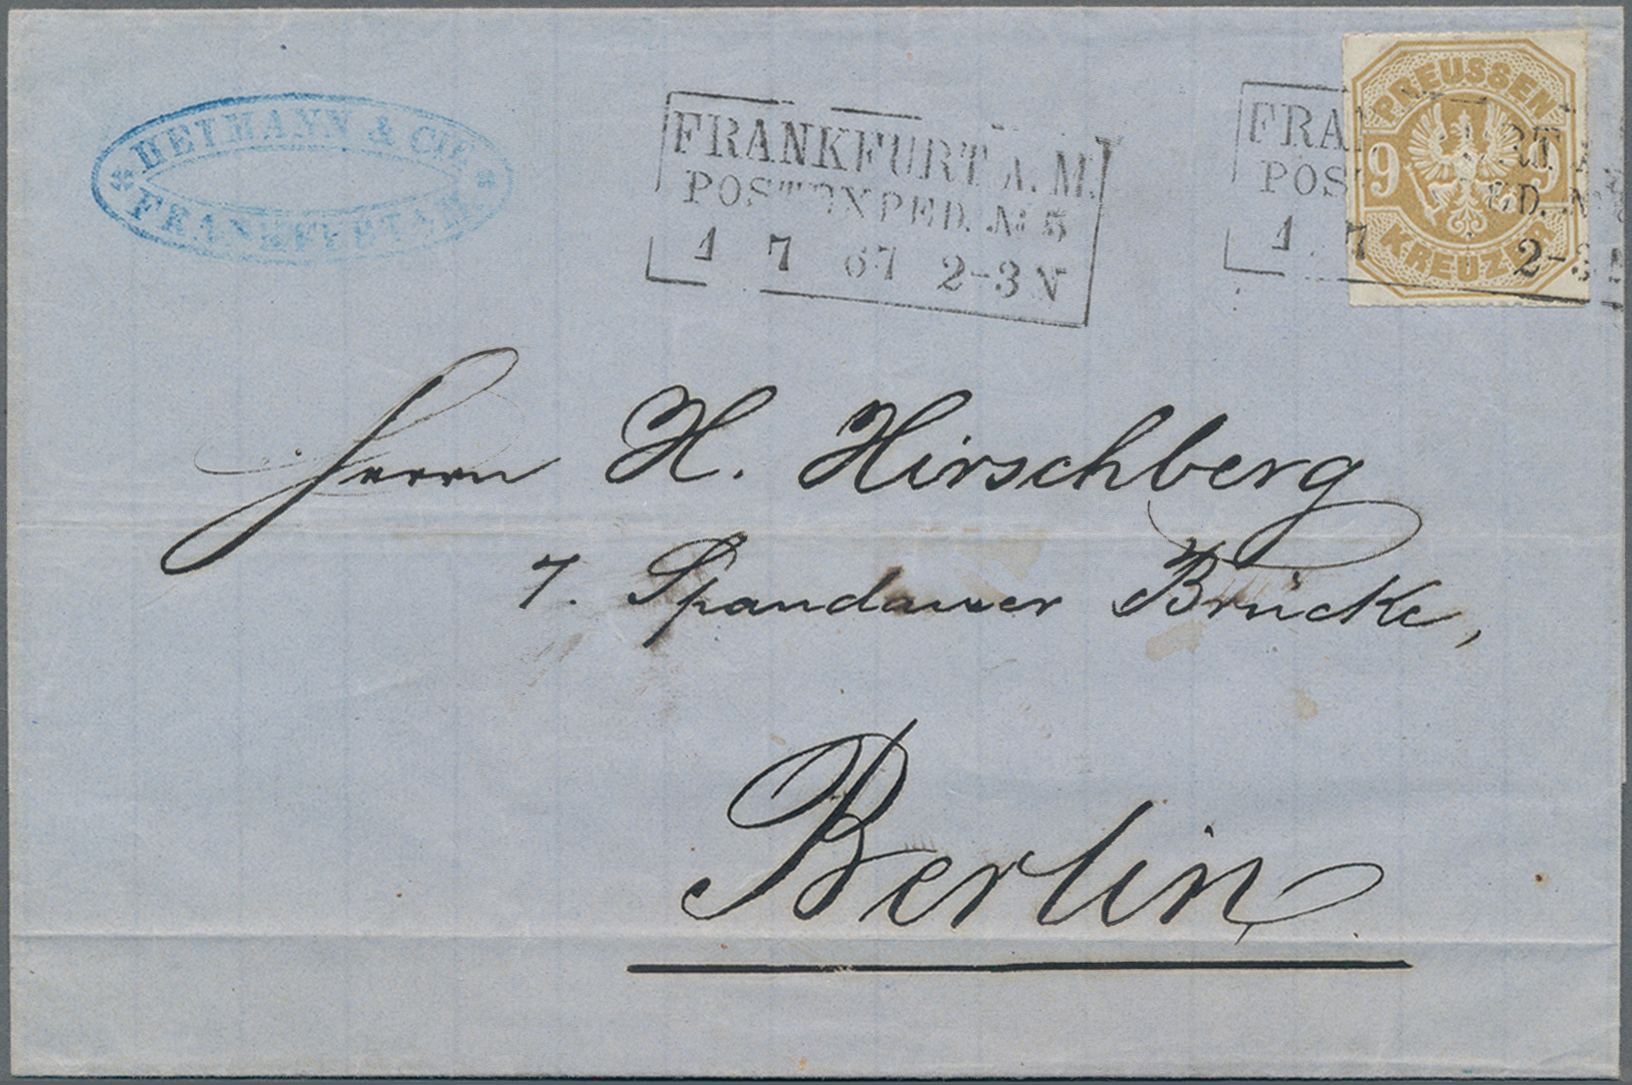 HEIMANN & CIE
FRANKFURT A/M.
FRANKFURT A. M.
POSTEXPED. № 5
1 7 67 2-3 N
PREUSSEN
9 9
KREUZER
FRA RT. A
POS ED. N
1 7 2-3
Herrn H. Hirschberg
7. Spandauer Brücke,
Berlin